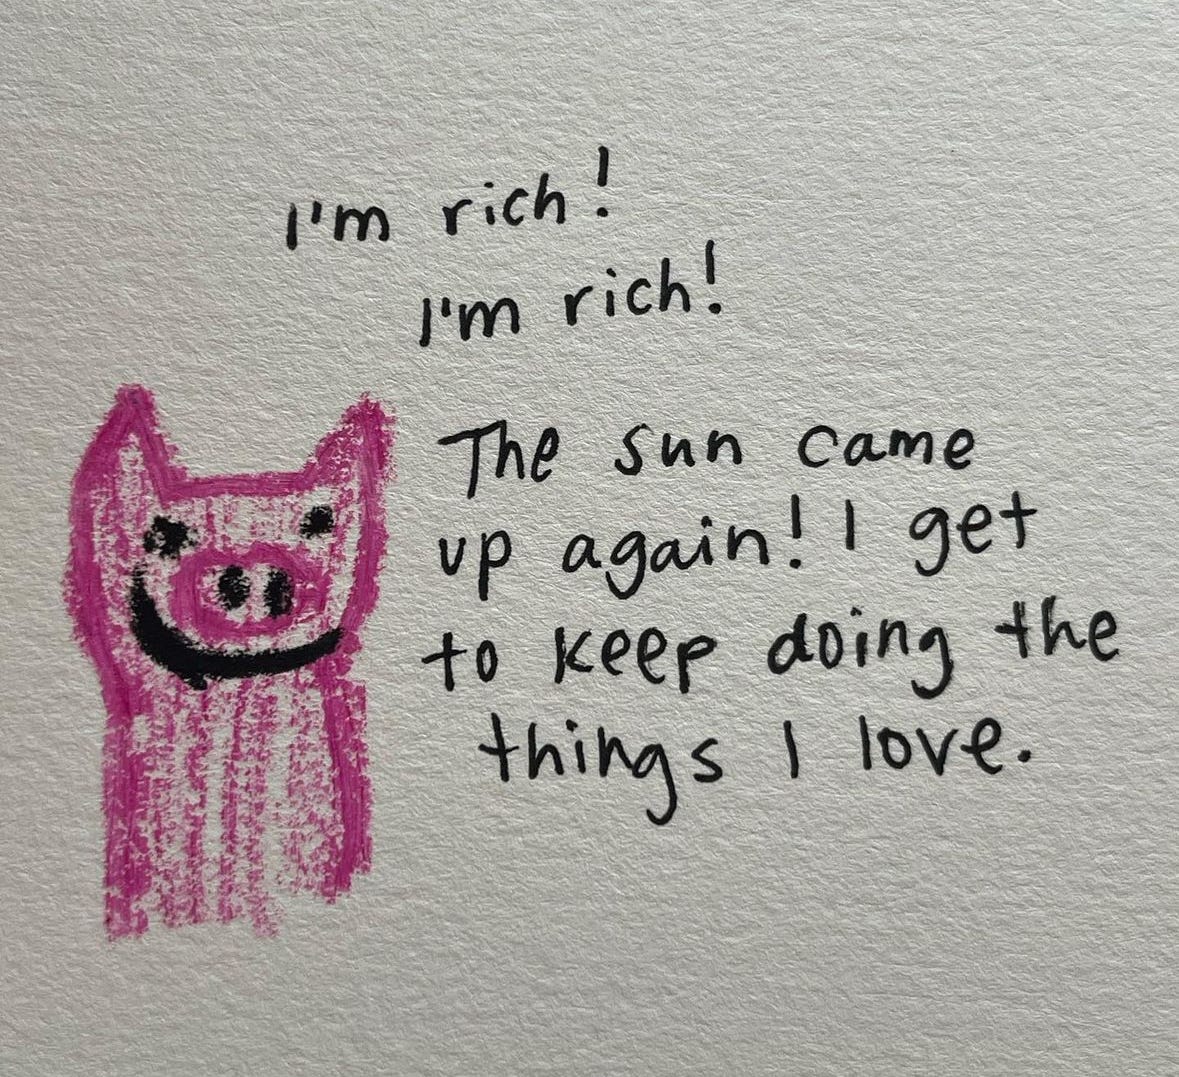 I'm rich!
I'm rich!
The sun came
up again! I get
to keep doing the
things I love.